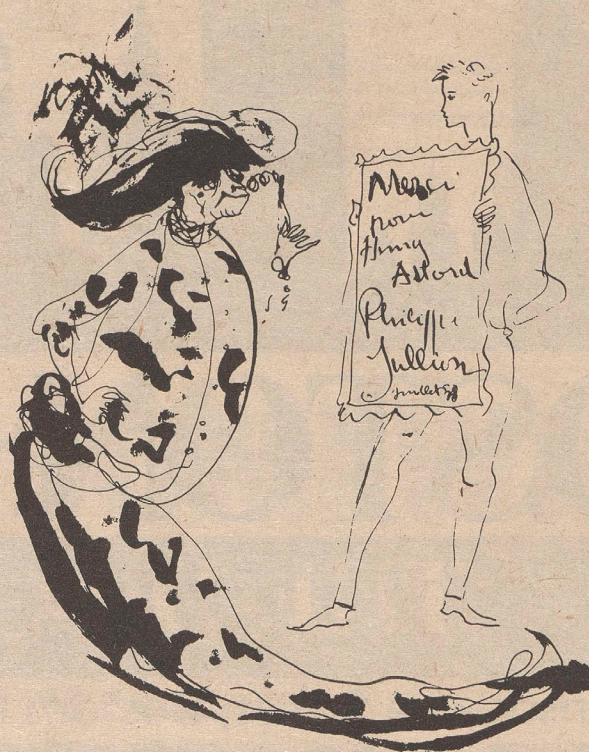 Merci
pour
Attord
Philippe
Jullian
Juillet 58